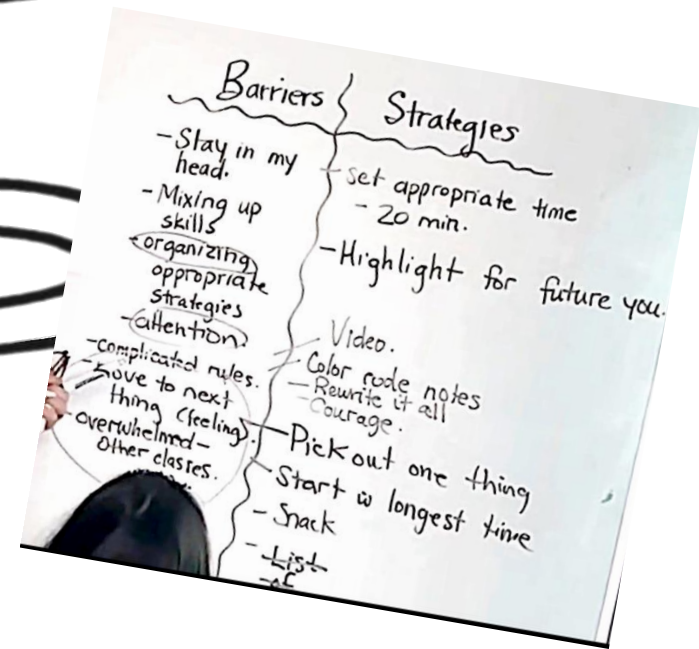 Barriers
- Stay in my
head.
- Mixing up
skills
- organizing
oppropriate
strategies
- attention
- complicated rules.
- move to next
thing (feeling).
- overwhelmed -
other classes.
Strategies
- set appropriate time
- 20 min.
- Highlight for future you.
- Video.
- Color code notes
- Rewrite it all
- Courage.
- Pick out one thing
- Start w longest time
- Snack
- List